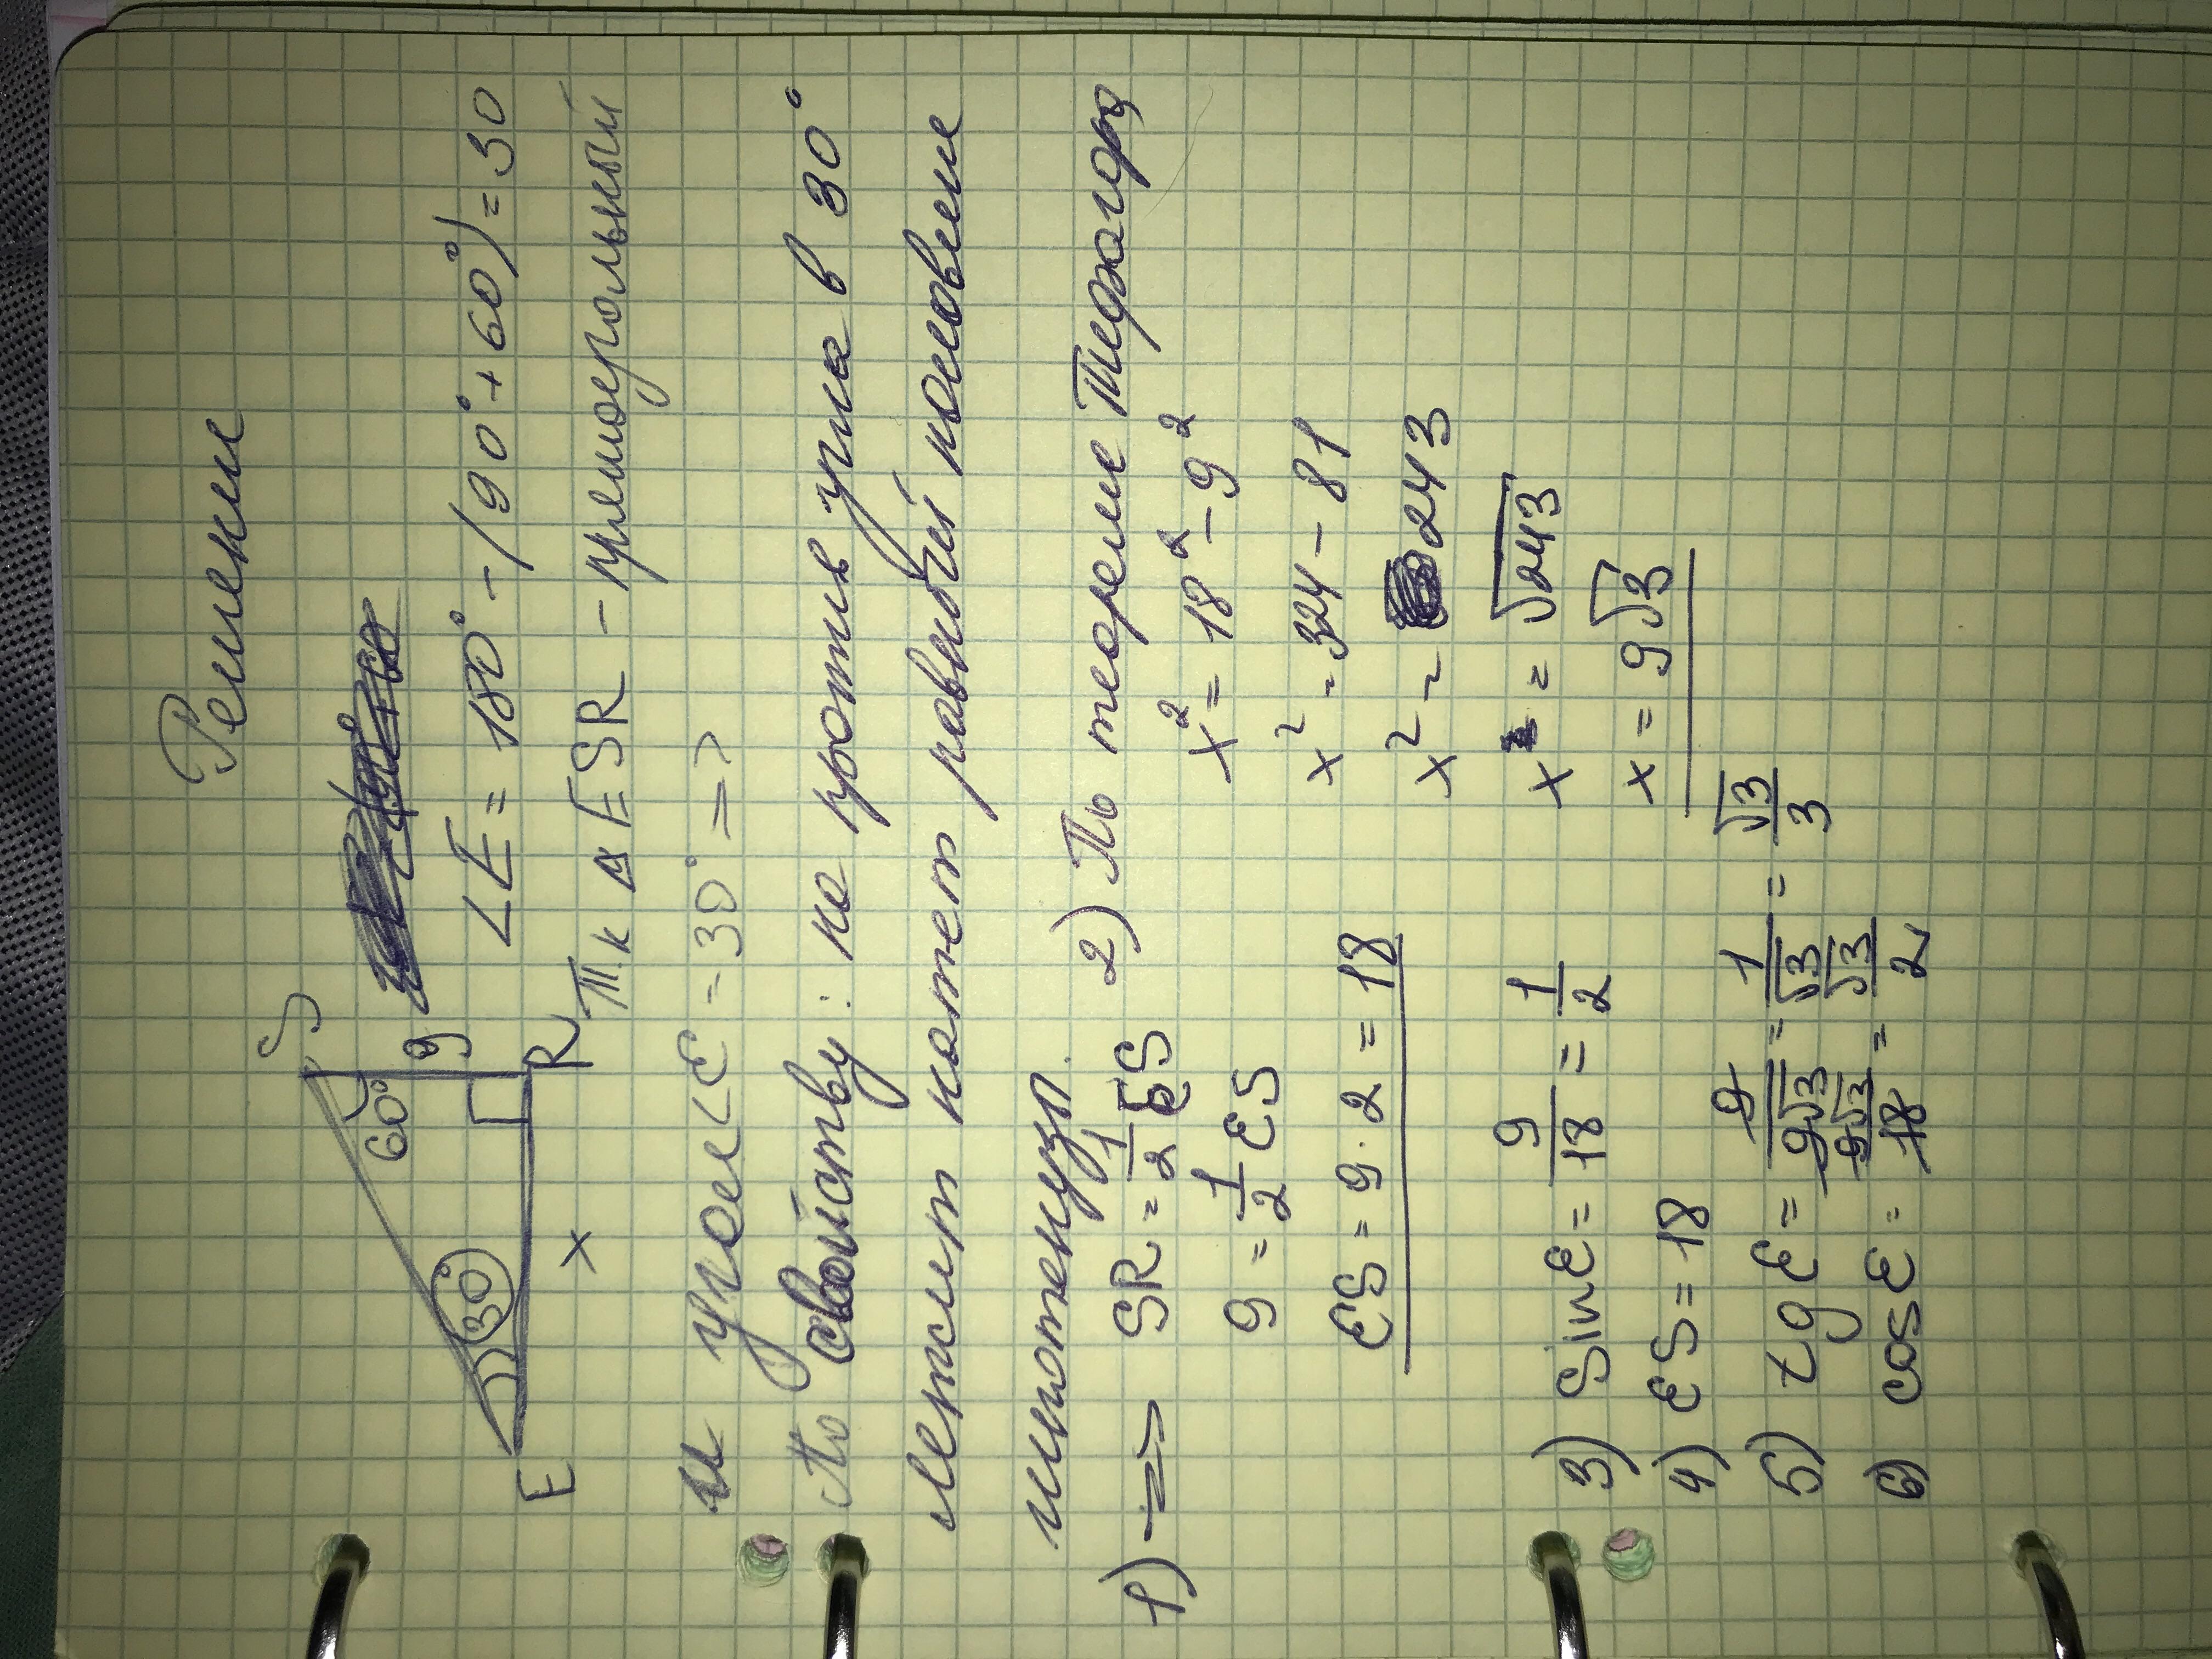 Решение
S
60°
9
30°
E
x
R
∠E = 180° - (90° + 60°) = 30
Т.к △ESR - прямоугольный
и угол ∠E = 30° =>
По свойству: на против угла в 30°
лежит катет равный половине
гипотенуз.
1) => SR = 1/2 ES
9 = 1/2 ES
ES = 9 · 2 = 18
2) По теореме Пифагора
x² = 18² - 9²
x² = 324 - 81
x² = 243
x = √243
x = 9√3
3) Sin E = 9/18 = 1/2
4) ES = 18
5) tg E = 9/9√3 = 1/√3 = √3/3
6) cos E = 9√3/18 = √3/2